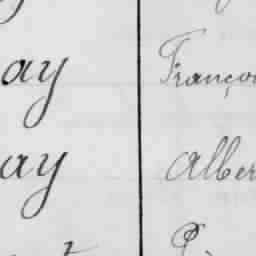 ay Françoi
ay Alber